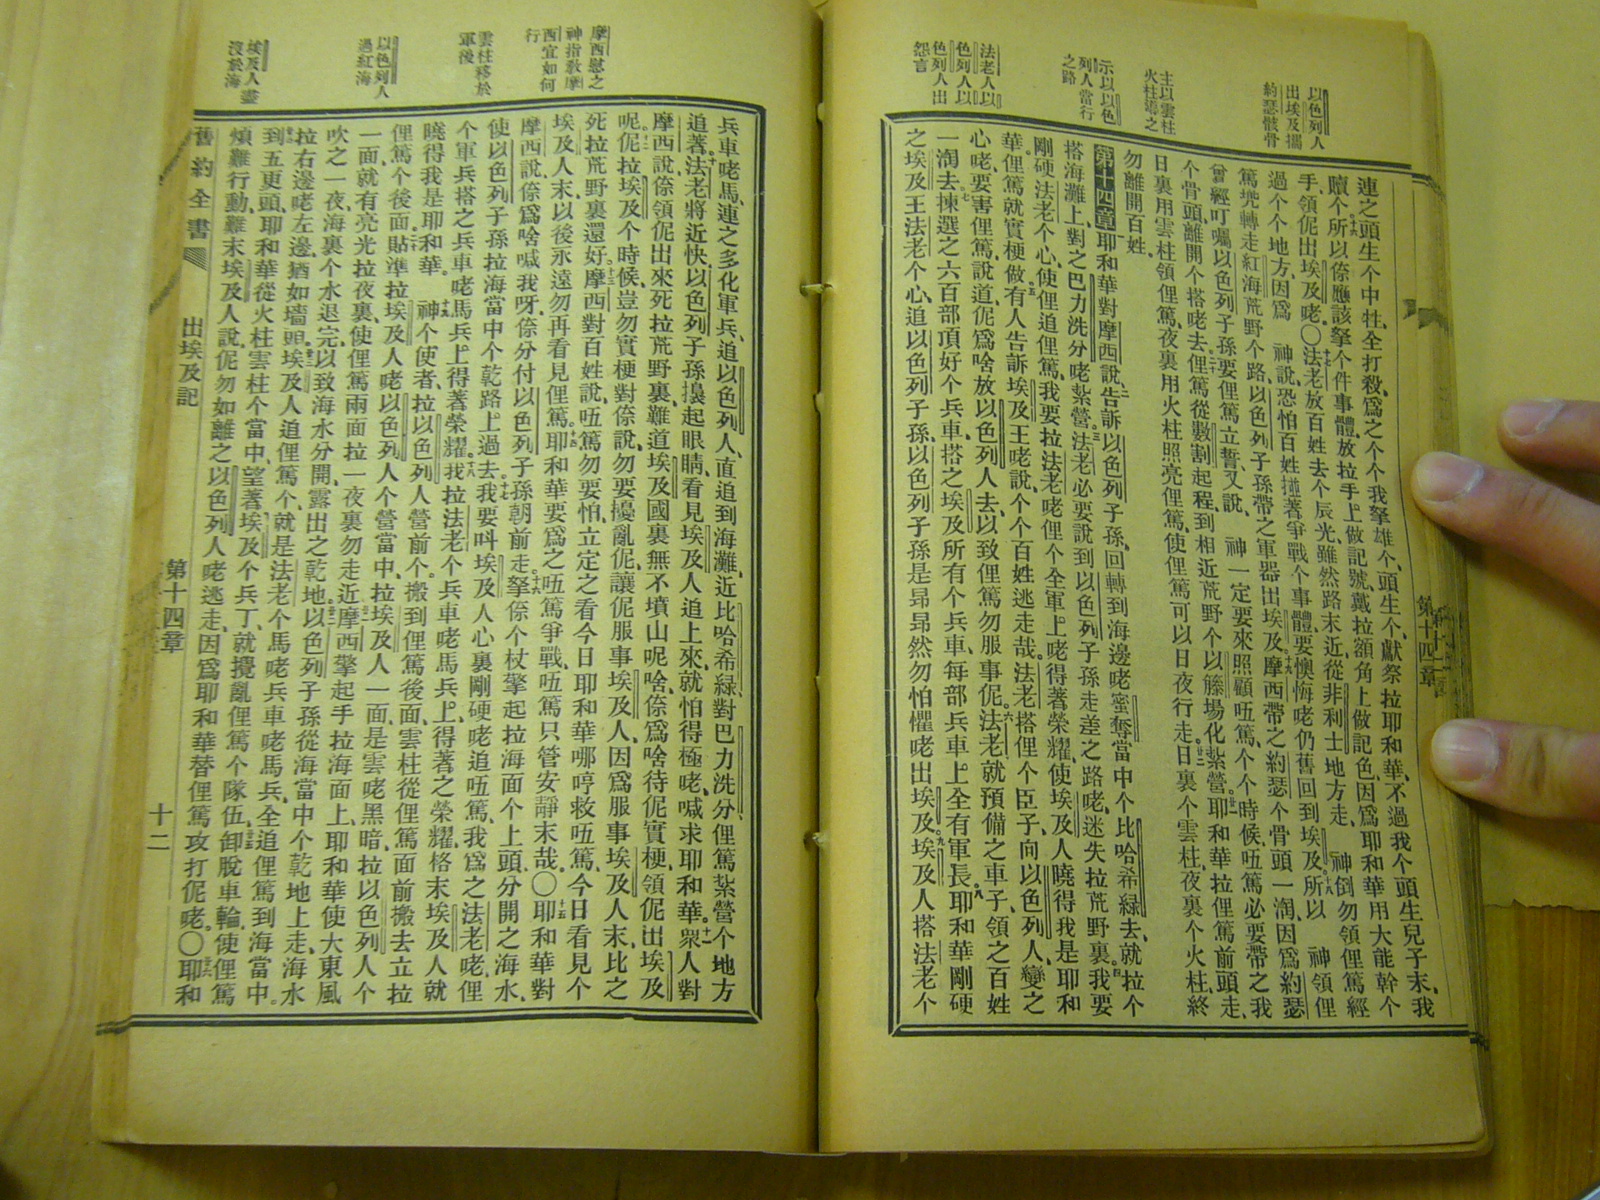 以色列人
出埃及攜
約瑟骸骨
主以雲柱
火柱導之
示以以色
列人當行
之路
法老人以
色列人以
色列人出
怨言
連之頭生个中牲、全打殺、爲之个个我拏雄个、頭生个、獻祭拉耶和華、不過我个頭生兒子末、我
贖个。所以倷應該拏个件事體放拉手上做記號、戴拉額角上做記色、因爲耶和華用大能幹个
手、領伲出埃及咾。〇法老放百姓去个辰光、雖然路末近從非利士地方走、 神倒勿領俚篤經
過个个地方、因爲 神說、恐怕百姓撞著爭戰个事體、要懊悔咾仍舊回到埃及。所以 神領俚
篤兜轉走紅海荒野个路、以色列子孫帶之軍器出埃及。摩西帶之約瑟个骨頭一淘、因爲約瑟
曾經叮囑以色列子孫、要俚篤立誓、又說、 神一定要來照顧㕶篤、个个時候、㕶篤必要帶之我
个骨頭、離開个搭咾去。俚篤從數割起程、到相近荒野个以籐場化紮營。耶和華拉俚篤前頭走、
日裏用雲柱領俚篤、夜裏用火柱照亮俚篤、使俚篤可以日夜行走。日裏个雲柱、夜裏个火柱、終
勿離開百姓。
第十四章 耶和華對摩西說、告訴以色列子孫、回轉到海邊咾、蜜奪當中个比哈希綠去、就拉个
搭海灘上、對之巴力洗分咾紮營。法老必要說到以色列子孫走差之路咾、迷失拉荒野裏。我要
剛硬法老个心、使俚追俚篤、我要拉法老咾俚个全軍上咾得著榮耀、使埃及人曉得我是耶和
華。俚篤就實梗做。有人告訴埃及王咾說、个个百姓逃走哉。法老搭俚个臣子、向以色列人、變之
心咾、要害俚篤、說道、伲爲啥放以色列人去、以致俚篤勿服事伲。法老就預備之車子、領之百姓
一淘去。揀選之六百部頂好个兵車、搭之埃及所有个兵車、每部兵車上全有軍長。耶和華剛硬
之埃及王法老个心、追以色列子孫、以色列子孫是昻昻然勿怕懼咾出埃及。埃及人搭法老个
第十四章
摩西慰之
神指敎摩
西宜如何
行
雲柱移於
軍後
以色列人
過紅海
埃及人盡
沒於海
兵車咾馬、連之多化軍兵、追以色列人、直追到海灘、近比哈希綠、對巴力洗分俚篤紮營个地方
追著。法老將近快、以色列子孫擡起眼睛、看見埃及人追上來、就怕得極咾、喊求耶和華。衆人對
摩西說、倷領伲出來死拉荒野裏、難道埃及國裏無不墳山呢、啥、倷爲啥待伲實梗、領伲出埃及
呢。伲拉埃及个時候、豈勿實梗對倷說、勿要擾亂伲、讓伲服事埃及人、因爲服事埃及人末、比之
死拉荒野裏還好。摩西對百姓說、㕶篤勿要怕、立定之看今日耶和華哪哼救㕶篤、今日看見个
埃及人末、以後永遠勿再看見俚篤。耶和華要爲之㕶篤爭戰、㕶篤只管安靜末哉。〇耶和華對
摩西說、倷爲啥喊我呀、倷分付以色列子孫朝前走。拏倷个杖擎起拉海面个上頭、分開之海水、
使以色列子孫拉海當中个乾路上過去。我要呌埃及人心裏剛硬咾追㕶篤、我爲之法老咾、俚
个軍兵搭之兵車咾馬兵上得著榮耀。我拉法老个兵車咾馬兵上、得著之榮耀格末、埃及人就
曉得我是耶和華。 神个使者、拉以色列人營前个、搬到俚篤後面、雲柱從俚篤面前搬去立拉
俚篤个後面。貼準拉埃及人咾以色列人个營當中、拉埃及人一面、是雲咾黑暗、拉以色列人个
一面、就有亮光拉夜裏、使俚篤兩面拉一夜裏勿走近。摩西擎起手拉海面上、耶和華使大東風
吹之一夜、海裏个水退完、以致海水分開、露出之乾地。以色列子孫從海當中个乾地上走、海水
拉右邊咾左邊、猶如墻頭。埃及人追俚篤个、就是法老个馬咾兵車咾馬兵、全追俚篤到海當中。
到五更頭、耶和華從火柱雲柱个當中、望著埃及个兵丁、就攪亂俚篤个隊伍。卸脫車輪、使俚篤
煩難行動、難末埃及人說、伲勿如離之以色列人咾逃走、因爲耶和華替俚篤攻打伲咾。〇耶和
舊約全書 出埃及記 第十四章 十二